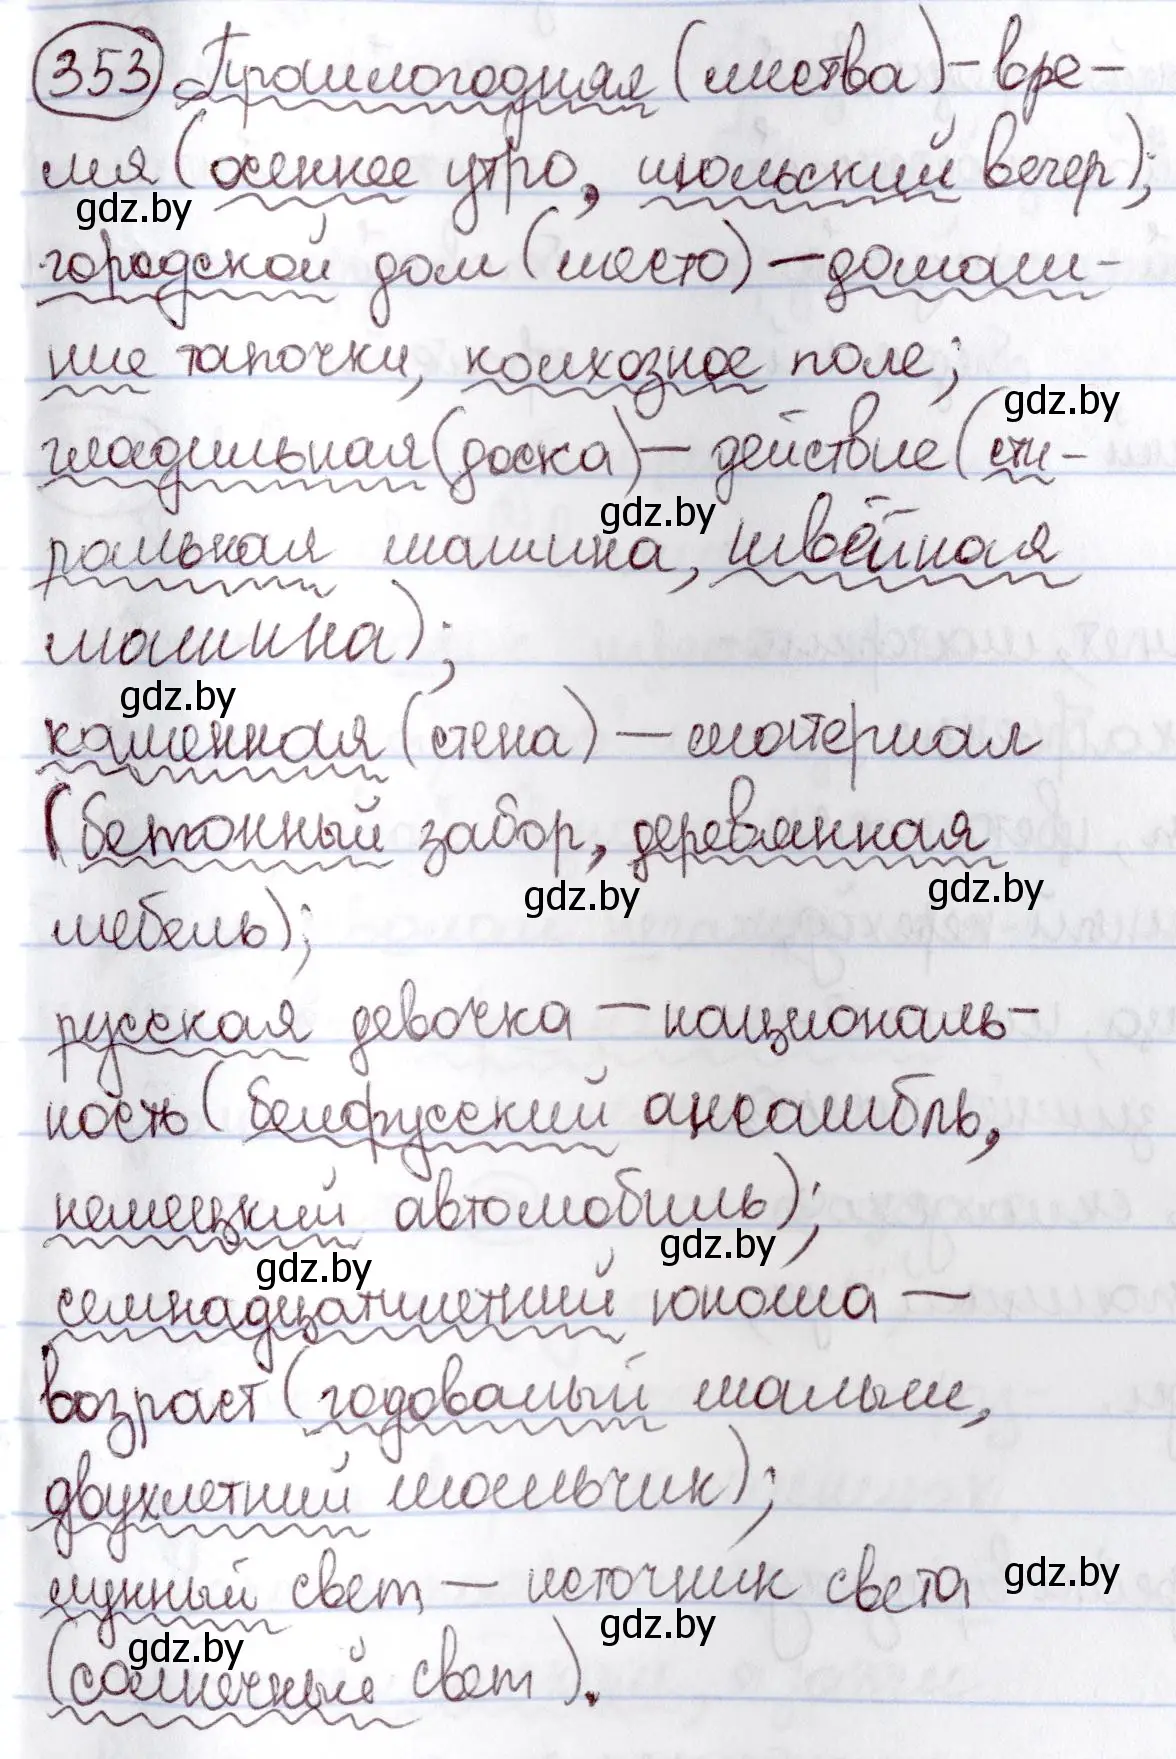 353 Прошлогодняя (листва) - вре-
мя (осеннее утро, июльский вечер);
gdz.by
городской дом (место) - домаш-
ние тапочки, колхозное поле;
gdz.by
гладильная (доска) - действие (сти-
gdz.by
ральная машина, швейная
машина);
gdz.by
каменная (стена) - материал
(бетонный забор, деревянная
gdz.by
gdz.by
мебель);
русская девочка - националь-
ность (белорусский ансамбль,
немецкий автомобиль);
gdz.by
gdz.by
семнадцатилетний юноша -
возраст (годовалый малыш,
двухлетний мальчик);
лунный свет - источник света
gdz.by
gdz.by
gdz.by
(солнечный свет).